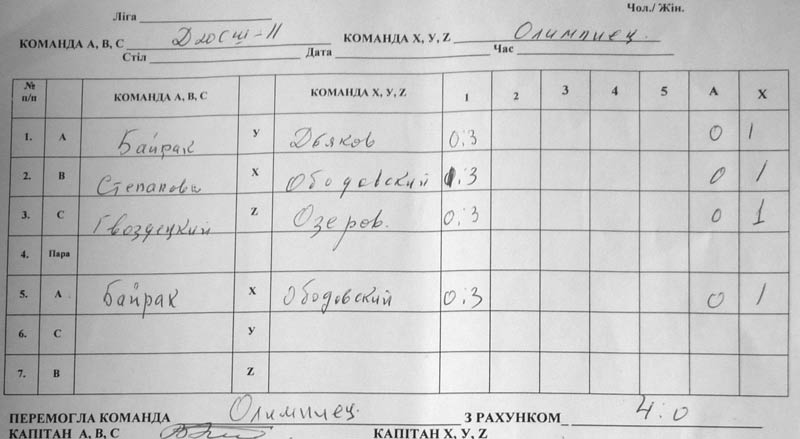 Чол./ Жін.
Ліга
КОМАНДА А, В, С ДЮСШ-11 КОМАНДА Х, У, Z Олимпиец.
Стіл Дата Час
№ п/п КОМАНДА А, В, С КОМАНДА Х, У, Z 1 2 3 4 5 А Х
1. А Байрак У Дьяков 0:3 0 1
2. В Степанова Х Ободовский 1:3 0 1
3. С Гвоздецкий Z Озеров. 0:3 0 1
4. Пара
5. А Байрак Х Ободовский 0:3 0 1
6. С У
7. В Z
ПЕРЕМОГЛА КОМАНДА Олимпиец. З РАХУНКОМ 4:0
КАПІТАН А, В, С КАПІТАН Х, У, Z